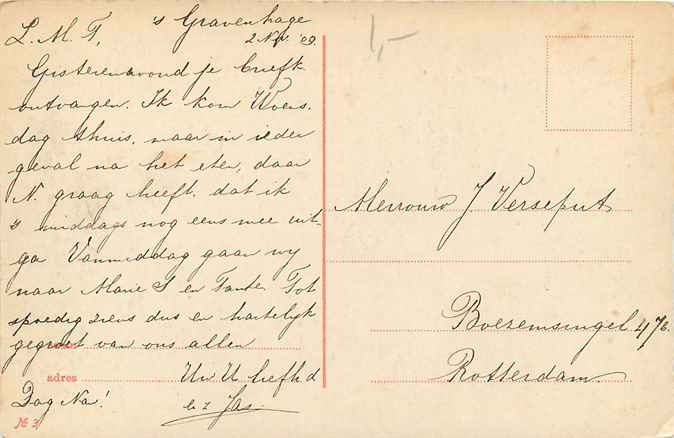 's Gravenhage
L. M. T, 2 Nov. '09.
Gisterenavond je brief
ontvangen. Ik kom Woens,
dag thuis, maar in ieder
geval na het eten, daar
N. graag heeft, dat ik
's middags nog eens mee uit-
ga Vanmiddag gaan wij
naar Marie S en Tante. Tot
spoedig ziens dus en hartelijk
gegroet van ons allen
adres Uw U liefh d
Dag Na! Jas.
№ 3
1,-
Mevrouw J Verseput
Boezemsingel 47b.
Rotterdam.